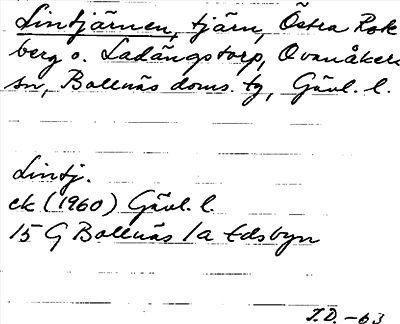 Lintjärnen, tjärn, Östra Rok
berg o. Ladängstorp, Ovanåkers
sn, Bollnäs doms. tg, Gävl. l.
Lintj.
ek (1960) Gävl. l.
15 G Bollnäs /a Edsbyn
T.D. -63